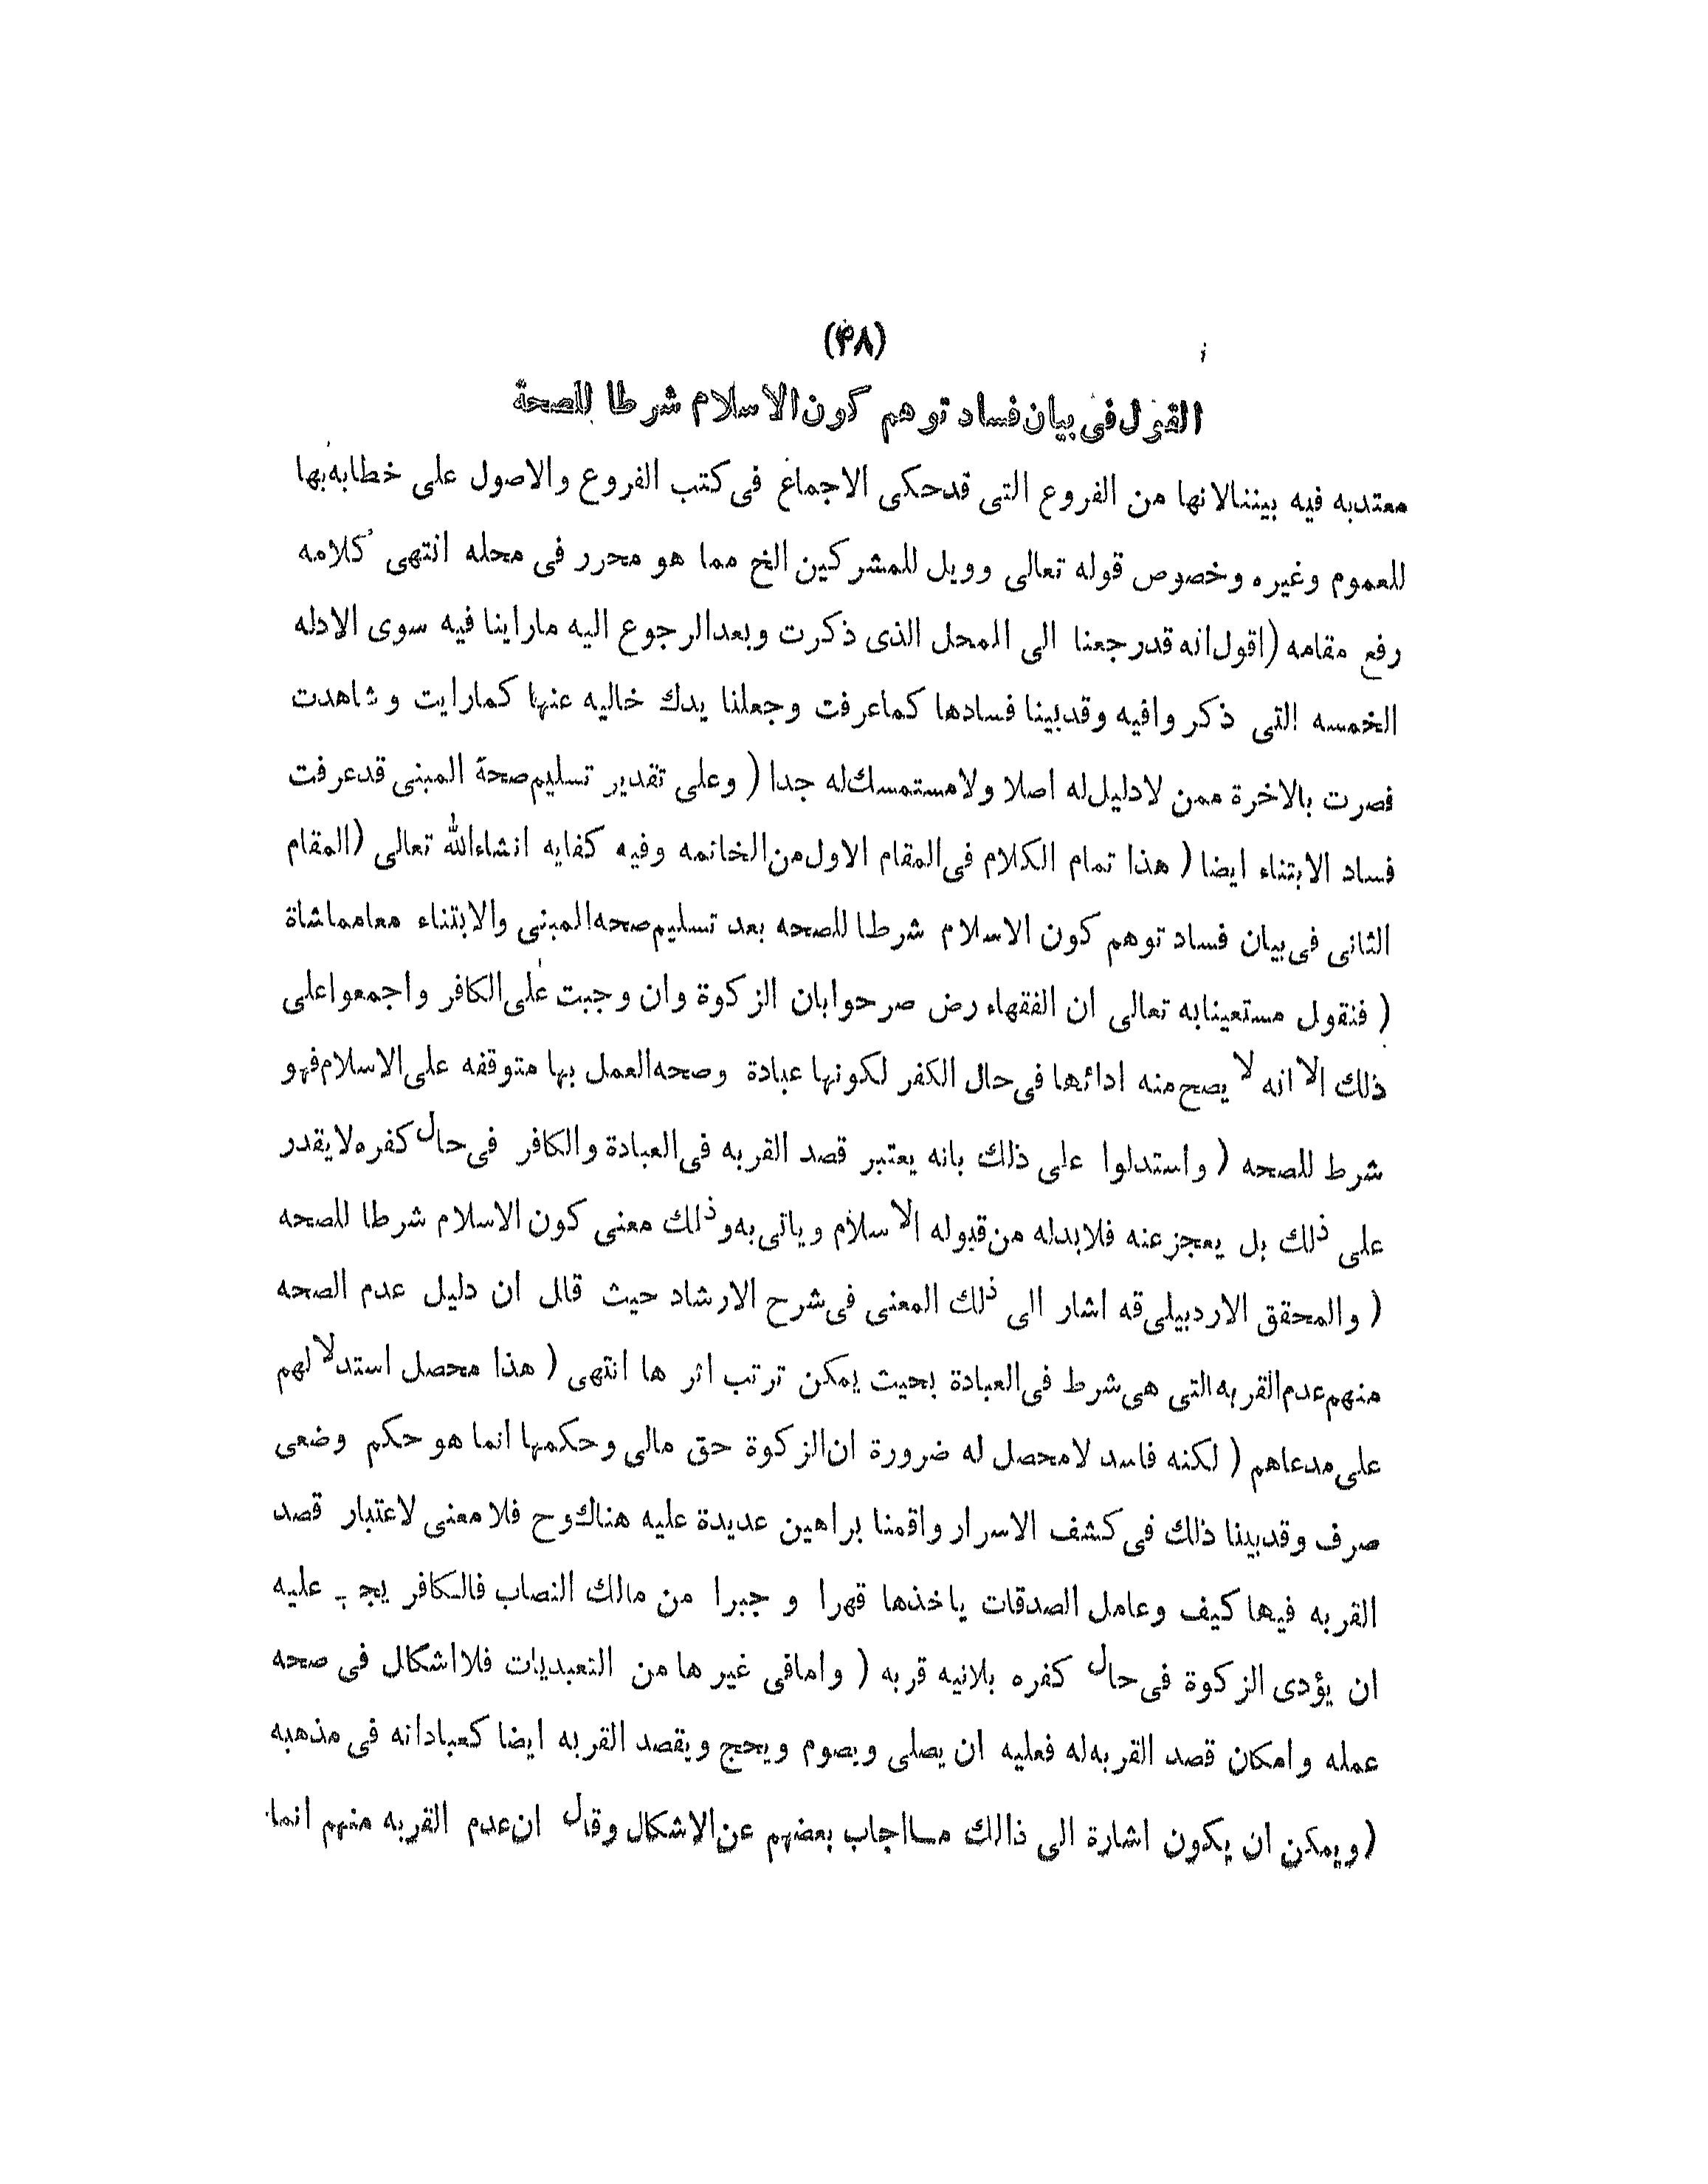 (۴۸)
القول فی بیان فساد توهم کون الاسلام شرطا للصحة
معتدبه فیه بیننالانها من الفروع التی قدحکی الاجماع فی کتب الفروع والاصول علی خطابه بها
للعموم وغیره وخصوص قوله تعالی وویل للمشرکین الخ مما هو محرر فی محله انتهی کلامه
رفع مقامه (اقول انه قدرجعنا الی المحل الذی ذکرت وبعدالرجوع الیه ماراینا فیه سوی الادله
الخمسه التی ذکر وافیه وقدبینا فسادها کماعرفت وجعلنا یدك خالیه عنها کمارایت وشاهدت
فصرت بالاخرة ممن لادلیل له اصلا ولامستمسك له جدا ( وعلی تقدیر تسلیم صحة المبنی قدعرفت
فساد الابتناء ایضا ( هذا تمام الکلام فی المقام الاول من الخاتمه وفیه کفایه انشاءالله تعالی (المقام
الثانی فی بیان فساد توهم کون الاسلام شرطا للصحه بعد تسلیم صحه المبنی والابتناء معامماشاة
( فنقول مستعینابه تعالی ان الفقهاء رض صرحوابان الزکوة وان وجبت علی الکافر واجمعواعلی
ذلك الا انه لا یصح منه ادائها فی حال الکفر لکونها عبادة وصحه العمل بها متوقفه علی الاسلام فهو
شرط للصحه ( واستدلوا علی ذلك بانه یعتبر قصد القربه فی العبادة والکافر فی حال کفره لایقدر
علی ذلك بل یعجز عنه فلابدله من قبوله الاسلام ویاتی به وذلك معنی کون الاسلام شرطا للصحه
( والمحقق الاردبیلی قه اشار الی ذلك المعنی فی شرح الارشاد حیث قال ان دلیل عدم الصحه
منهم عدم القربه التی هی شرط فی العبادة بحیث یمکن ترتب اثر ها انتهی ( هذا محصل استدلالهم
علی مدعاهم ( لکنه فاسد لامحصل له ضرورة ان الزکوة حق مالی وحکمها انما هو حکم وضعی
صرف وقدبینا ذلك فی کشف الاسرار واقمنا براهین عدیدة علیه هناك وح فلا معنی لاعتبار قصد
القربه فیها کیف وعامل الصدقات یاخذها قهرا و جبرا من مالك النصاب فالکافر یجب علیه
ان یؤدی الزکوة فی حال کفره بلانیه قربه ( وامافی غیر ها من التعبدیات فلااشکال فی صحه
عمله وامکان قصد القربه له فعلیه ان یصلی ویصوم ویحج ویقصد القربه ایضا کعباداته فی مذهبه
(ویمکن ان یکون اشارة الی ذالك مااجاب بعضهم عن الاشکال وقال ان عدم القربه منهم انما